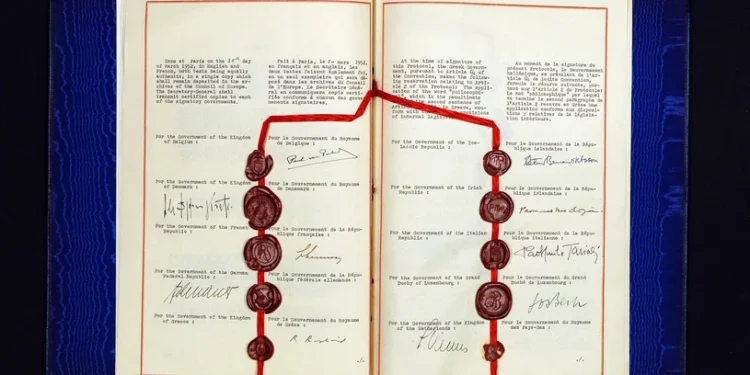 Done at Paris on the 20th day
of March 1952, in English and
French, both texts being equally
authentic, in a single copy which
shall remain deposited in the ar-
chives of the Council of Europe.
The Secretary-General shall
transmit certified copies to each
of the signatory Governments.
Fait à Paris, le 20 mars 1952,
en français et en anglais, les
deux textes faisant également foi,
en un seul exemplaire qui sera dé-
posé dans les archives du Conseil
de l'Europe. Le Secrétaire Géné-
ral en communiquera copie certi-
fiée conforme à chacun des gouver-
nements signataires.
For the Government of the Kingdom
of Belgium :
Pour le Gouvernement du Royaume
de Belgique :
For the Government of the Kingdom
of Denmark :
Pour le Gouvernement du Royaume
de Danemark :
For the Government of the French
Republic :
Pour le Gouvernement de la Répu-
blique française :
For the Government of the German
Federal Republic :
Pour le Gouvernement de la Répu-
blique fédérale allemande :
Adenauer
For the Government of the Kingdom
of Greece :
Pour le Gouvernement du Royaume
de Grèce :
./.
At the time of signature of
this Protocol, the Greek Govern-
ment, pursuant to Article 64 of
the Convention, makes the follow-
ing reservation relating to Arti-
cle 2 of the Protocol: The appli-
cation of the word "philosophi-
which is the penultimate
the second sentence of
in Greece, con-
form with
of internal
Au moment de la signature du
présent Protocole, le Gouvernement
hellénique, se prévalant de l'arti-
cle 64 de ladite Convention,
formule la réserve suivante, por-
tant sur l'article 2 du Protocole :
le mot "philosophiques" par lequel
se termine le second paragraphe de
l'article 2 recevra en Grèce une
application conforme aux dispositions
y relatives de la législa-
tion intérieure.
For the Government of the Ice-
landic Republic :
Pour le Gouvernement de la Répu-
blique islandaise :
For the Government of the Irish
Republic :
Pour le Gouvernement de la Répu-
blique irlandaise :
For the Government of the Italian
Republic :
Pour le Gouvernement de la Répu-
blique italienne :
For the Government of the Grand
Duchy of Luxembourg :
Pour le Gouvernement du Grand
Duché de Luxembourg :
Jos Bech
For the Government of the Kingdom
of the Netherlands :
Pour le Gouvernement du Royaume
des Pays-Bas :
./.